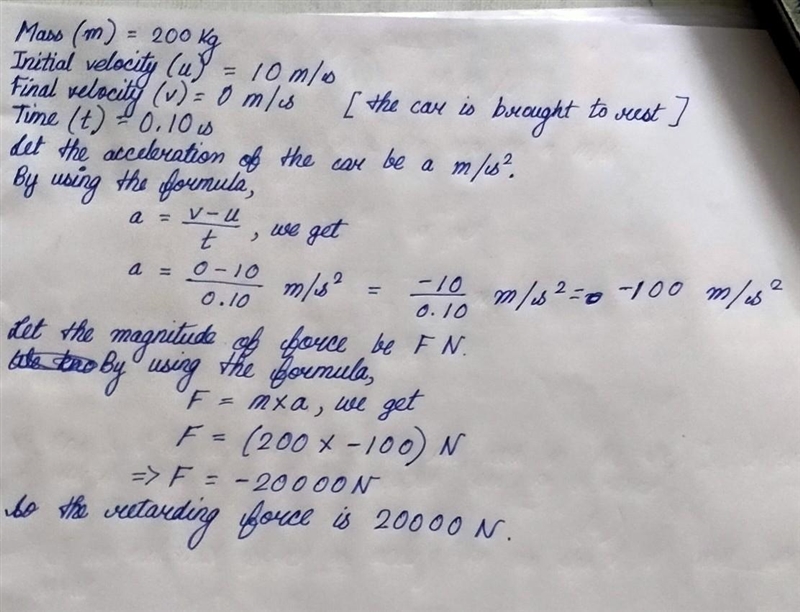 Mass (m) = 200 kg
Initial velocity (u) = 10 m/s
Final velocity (v) = 0 m/s [the car is brought to rest]
Time (t) = 0.10 s
Let the acceleration of the car be a m/s².
By using the formula,
a = v-u/t, we get
a = 0-10/0.10 m/s² = -10/0.10 m/s² = -100 m/s²
Let the magnitude of force be F N.
By using the formula,
F = m×a, we get
F = (200 × -100) N
=> F = -20000N
So the retarding force is 20000 N.